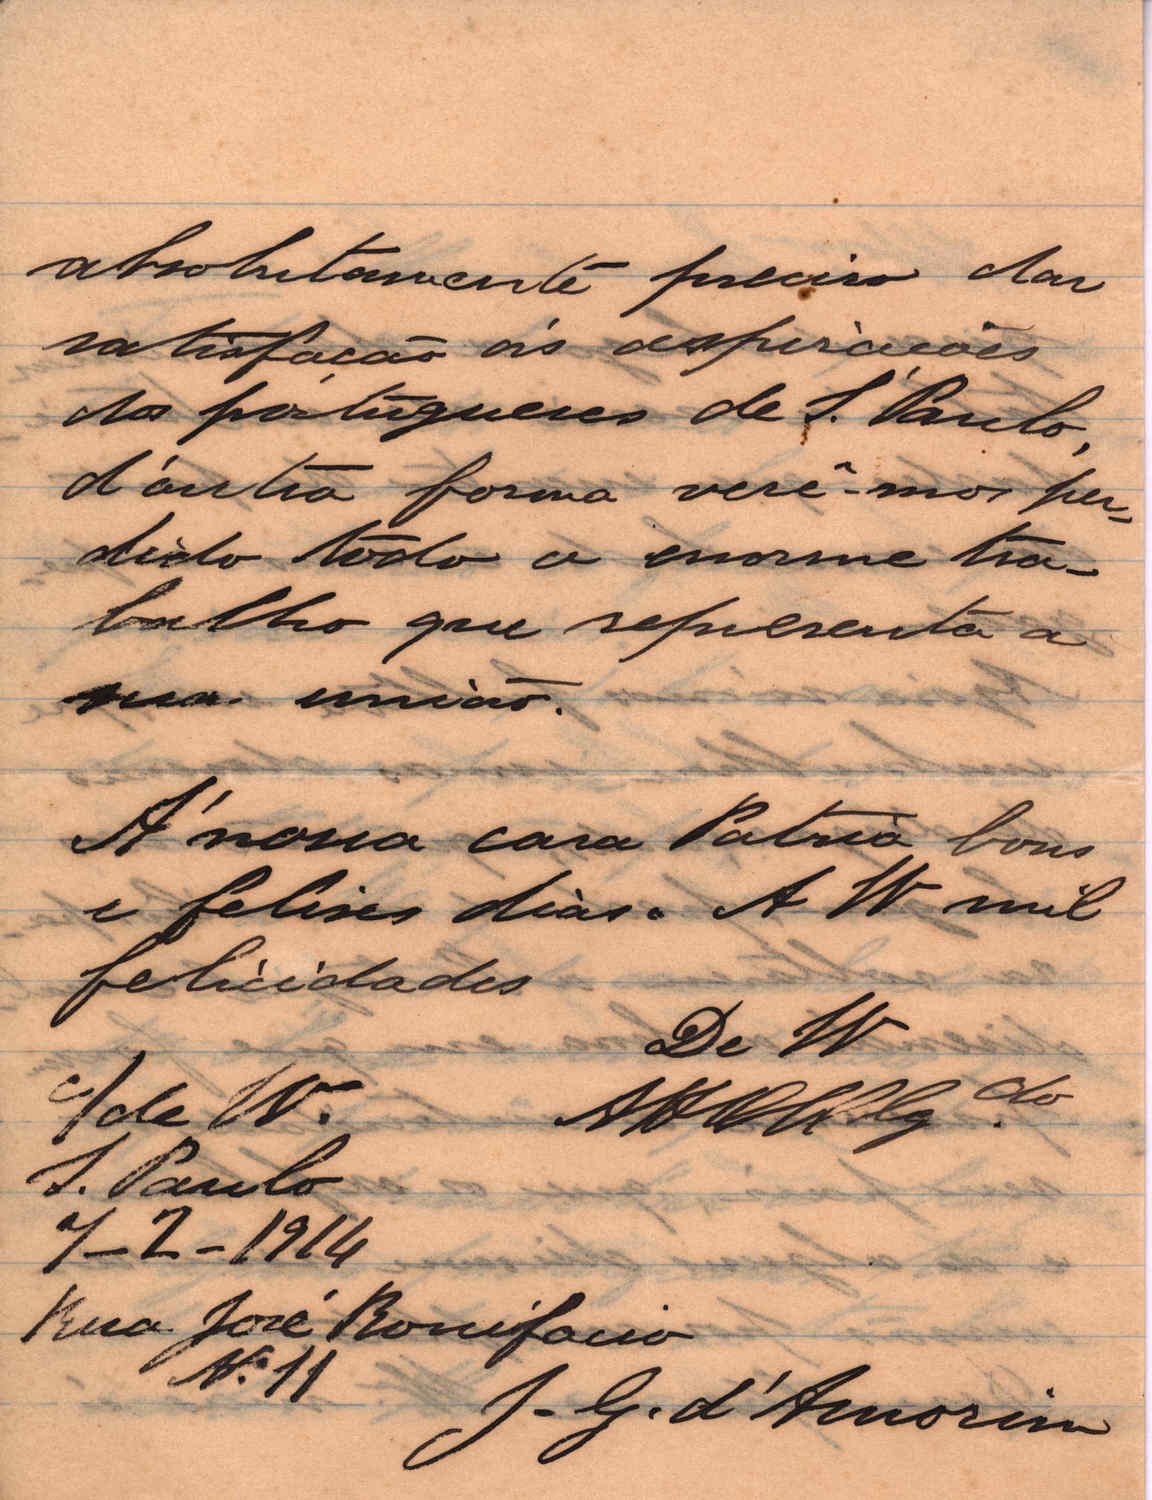 absolutamente preciso dar
satisfação ás aspirações
dos pórtugueses de S. Paulo,
d'outra forma verê-mos per-
dido todo o enorme tra-
balho que representa a
sua união.
Á nossa cara Patria bons
e felises dias. A W mil
felicidades
De W
c/ de W.
S. Paulo
7-2-1914
Rua José Bonifacio
Nº. 11
J. G. d'Amorim